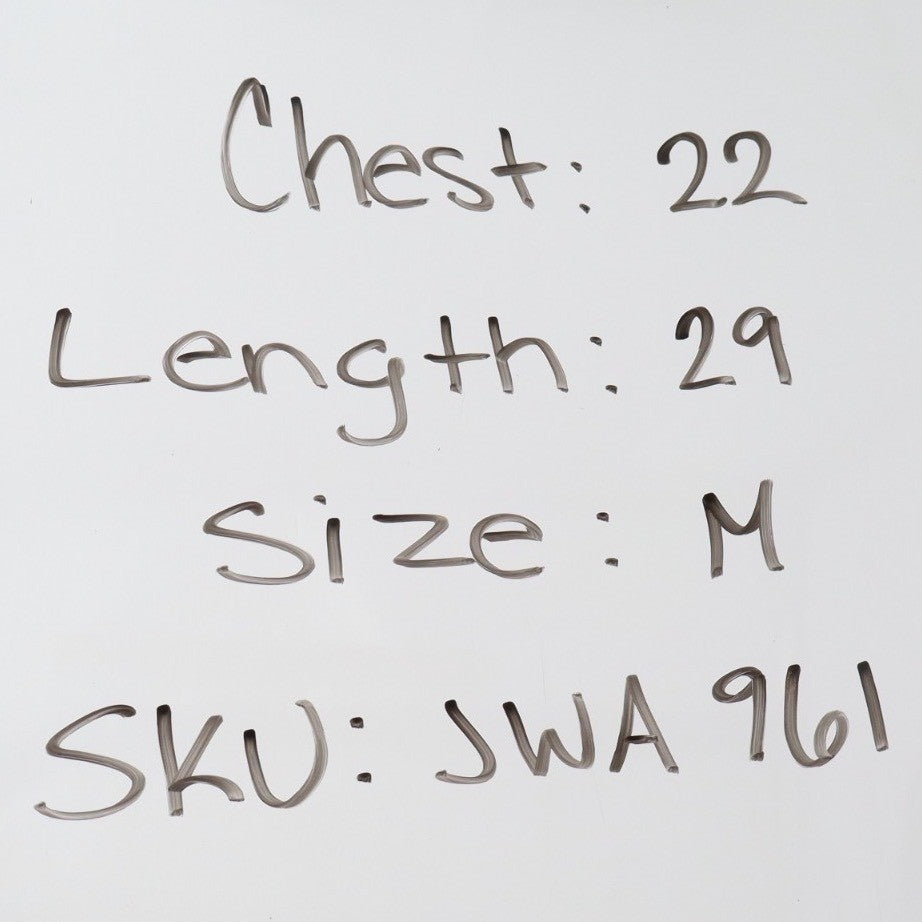 Chest: 22
Length: 29
Size: M
SKU: JWA 961